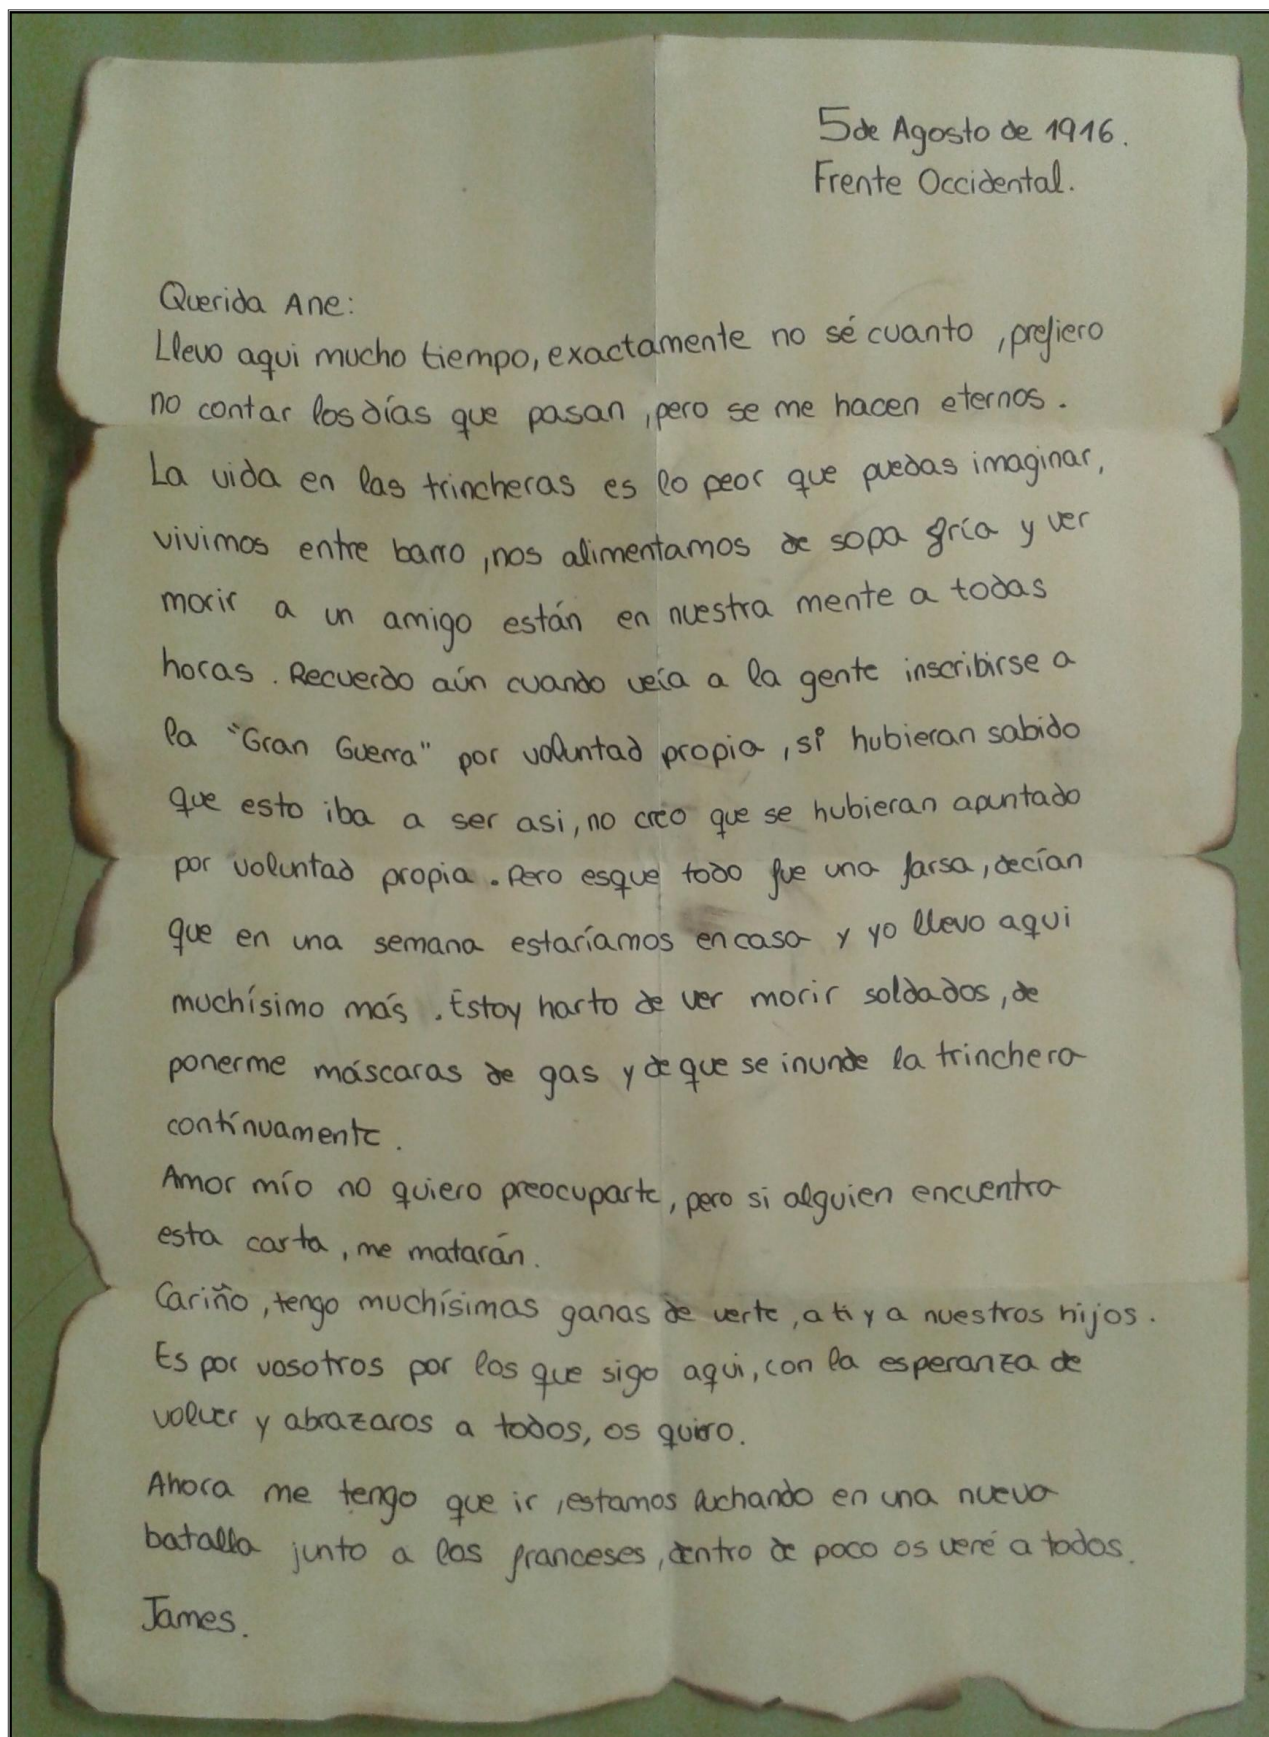 5 de Agosto de 1916.
Frente Occidental.
Querida Ane:
Llevo aqui mucho tiempo, exactamente no sé cuanto, prefiero
no contar los días que pasan, pero se me hacen eternos.
La vida en las trincheras es lo peor que puedas imaginar,
vivimos entre barro, nos alimentamos de sopa fría y ver
morir a un amigo están en nuestra mente a todas
horas. Recuerdo aún cuando veía a la gente inscribirse a
la "Gran Guerra" por voluntad propia, si hubieran sabido
que esto iba a ser asi, no creo que se hubieran apuntado
por voluntad propia. Pero esque todo fue una farsa, decían
que en una semana estaríamos en casa y yo llevo aqui
muchísimo más. Estoy harto de ver morir soldados, de
ponerme máscaras de gas y de que se inunde la trinchera
contínuamente.
Amor mío no quiero preocuparte, pero si alguien encuentra
esta carta, me matarán.
Cariño, tengo muchísimas ganas de verte, a ti y a nuestros hijos.
Es por vosotros por los que sigo aqui, con la esperanza de
volver y abrazaros a todos, os quiero.
Ahora me tengo que ir, estamos luchando en una nueva
batalla junto a los franceses, dentro de poco os veré a todos.
James.